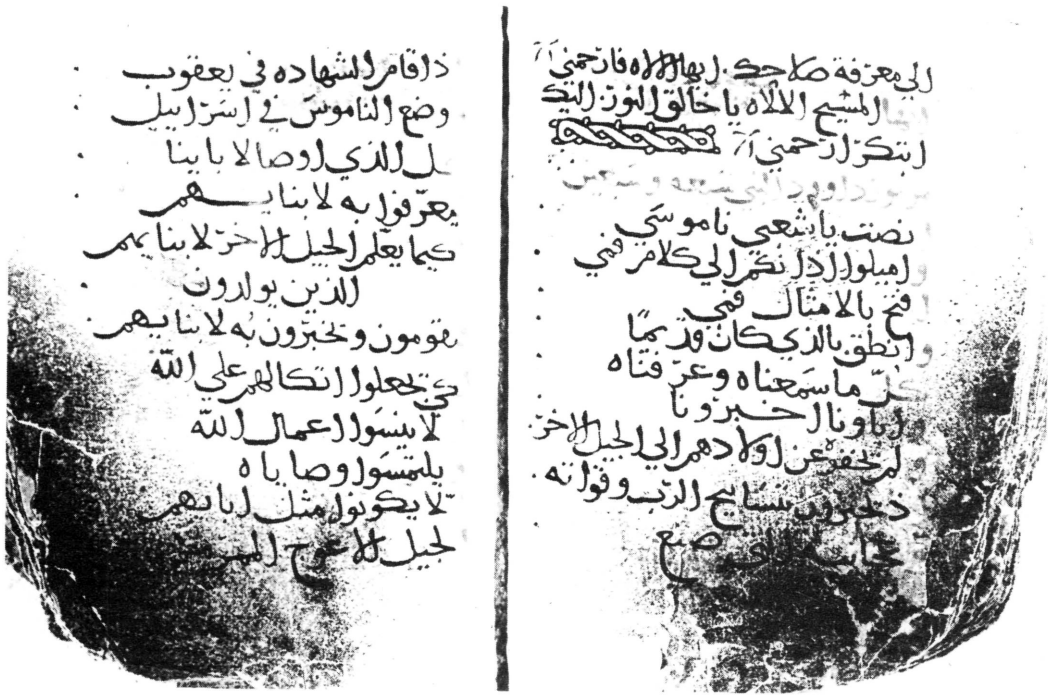 الي معرفة صلاحك. ايها الالاه فارحمني
المسيح الالاه يا خالق النور الذي
ابتكر ارحمني
مزمور داوود الثمنيه وسبعين
نصت يا شعبي ناموسي
واميلوا اذانكم الي كلام فمي
فتح بالامثال فمي
وانطق بالذي كان قديمًا
كلّ ما سمعناه وعرفناه
اباونا اخبرونا
لم يخفوه عن اولادهم الي الجيل الاخر
يخبرون بتسابيح الربّ وقواته
صنع
ذا قام الشهاده في يعقوب
وضع الناموس في اسرايل
الذي اوصا لابابنا
يعرفوا به لابنايهم
كيما يعلم الجيل الاخر لابنايهم
الذين يولدون
يقومون ويخبرون به لابنايهم
كي يجعلوا اتكالهم علي اللّه
لا ينسوا اعمال اللّه
يلتمسوا وصاياه
لا يكونوا مثل ابايهم
لجيل الاعوج المر